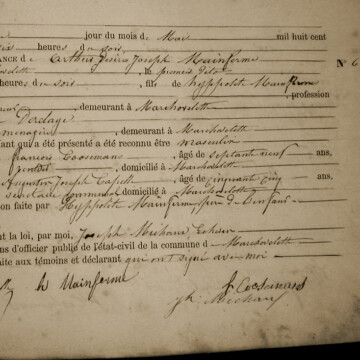 jour du mois de Mai mil huit cent
heures du soir
NCE d'e Arthur Joseph Mainferme No 6
Marchovelette, le premier dito
heures du soir, fils de Hyppolite Mainferme
, profession
, demeurant à Marchovelette
Derclaye
ménagère, demeurant à Marchovelette
ant qui a été présenté a été reconnu être masculin
françois Coosemans, âgé de septante neuf ans,
rentier, domicilié à Marchovelette
Augustin Joseph Capelle, âgé de cinquante cinq ans,
secrétaire communal domicilié à Marchovelette
on faite par Hyppolite Mainferme, père de l'enfant
nt la loi, par moi, Joseph Michaux Echevin
ns d'officier public de l'état-civil de la commune d e Marchovelette
aite aux témoins et déclarant qui ont signé avec moi
h Mainferme J. Coosemans
Jh Michaux